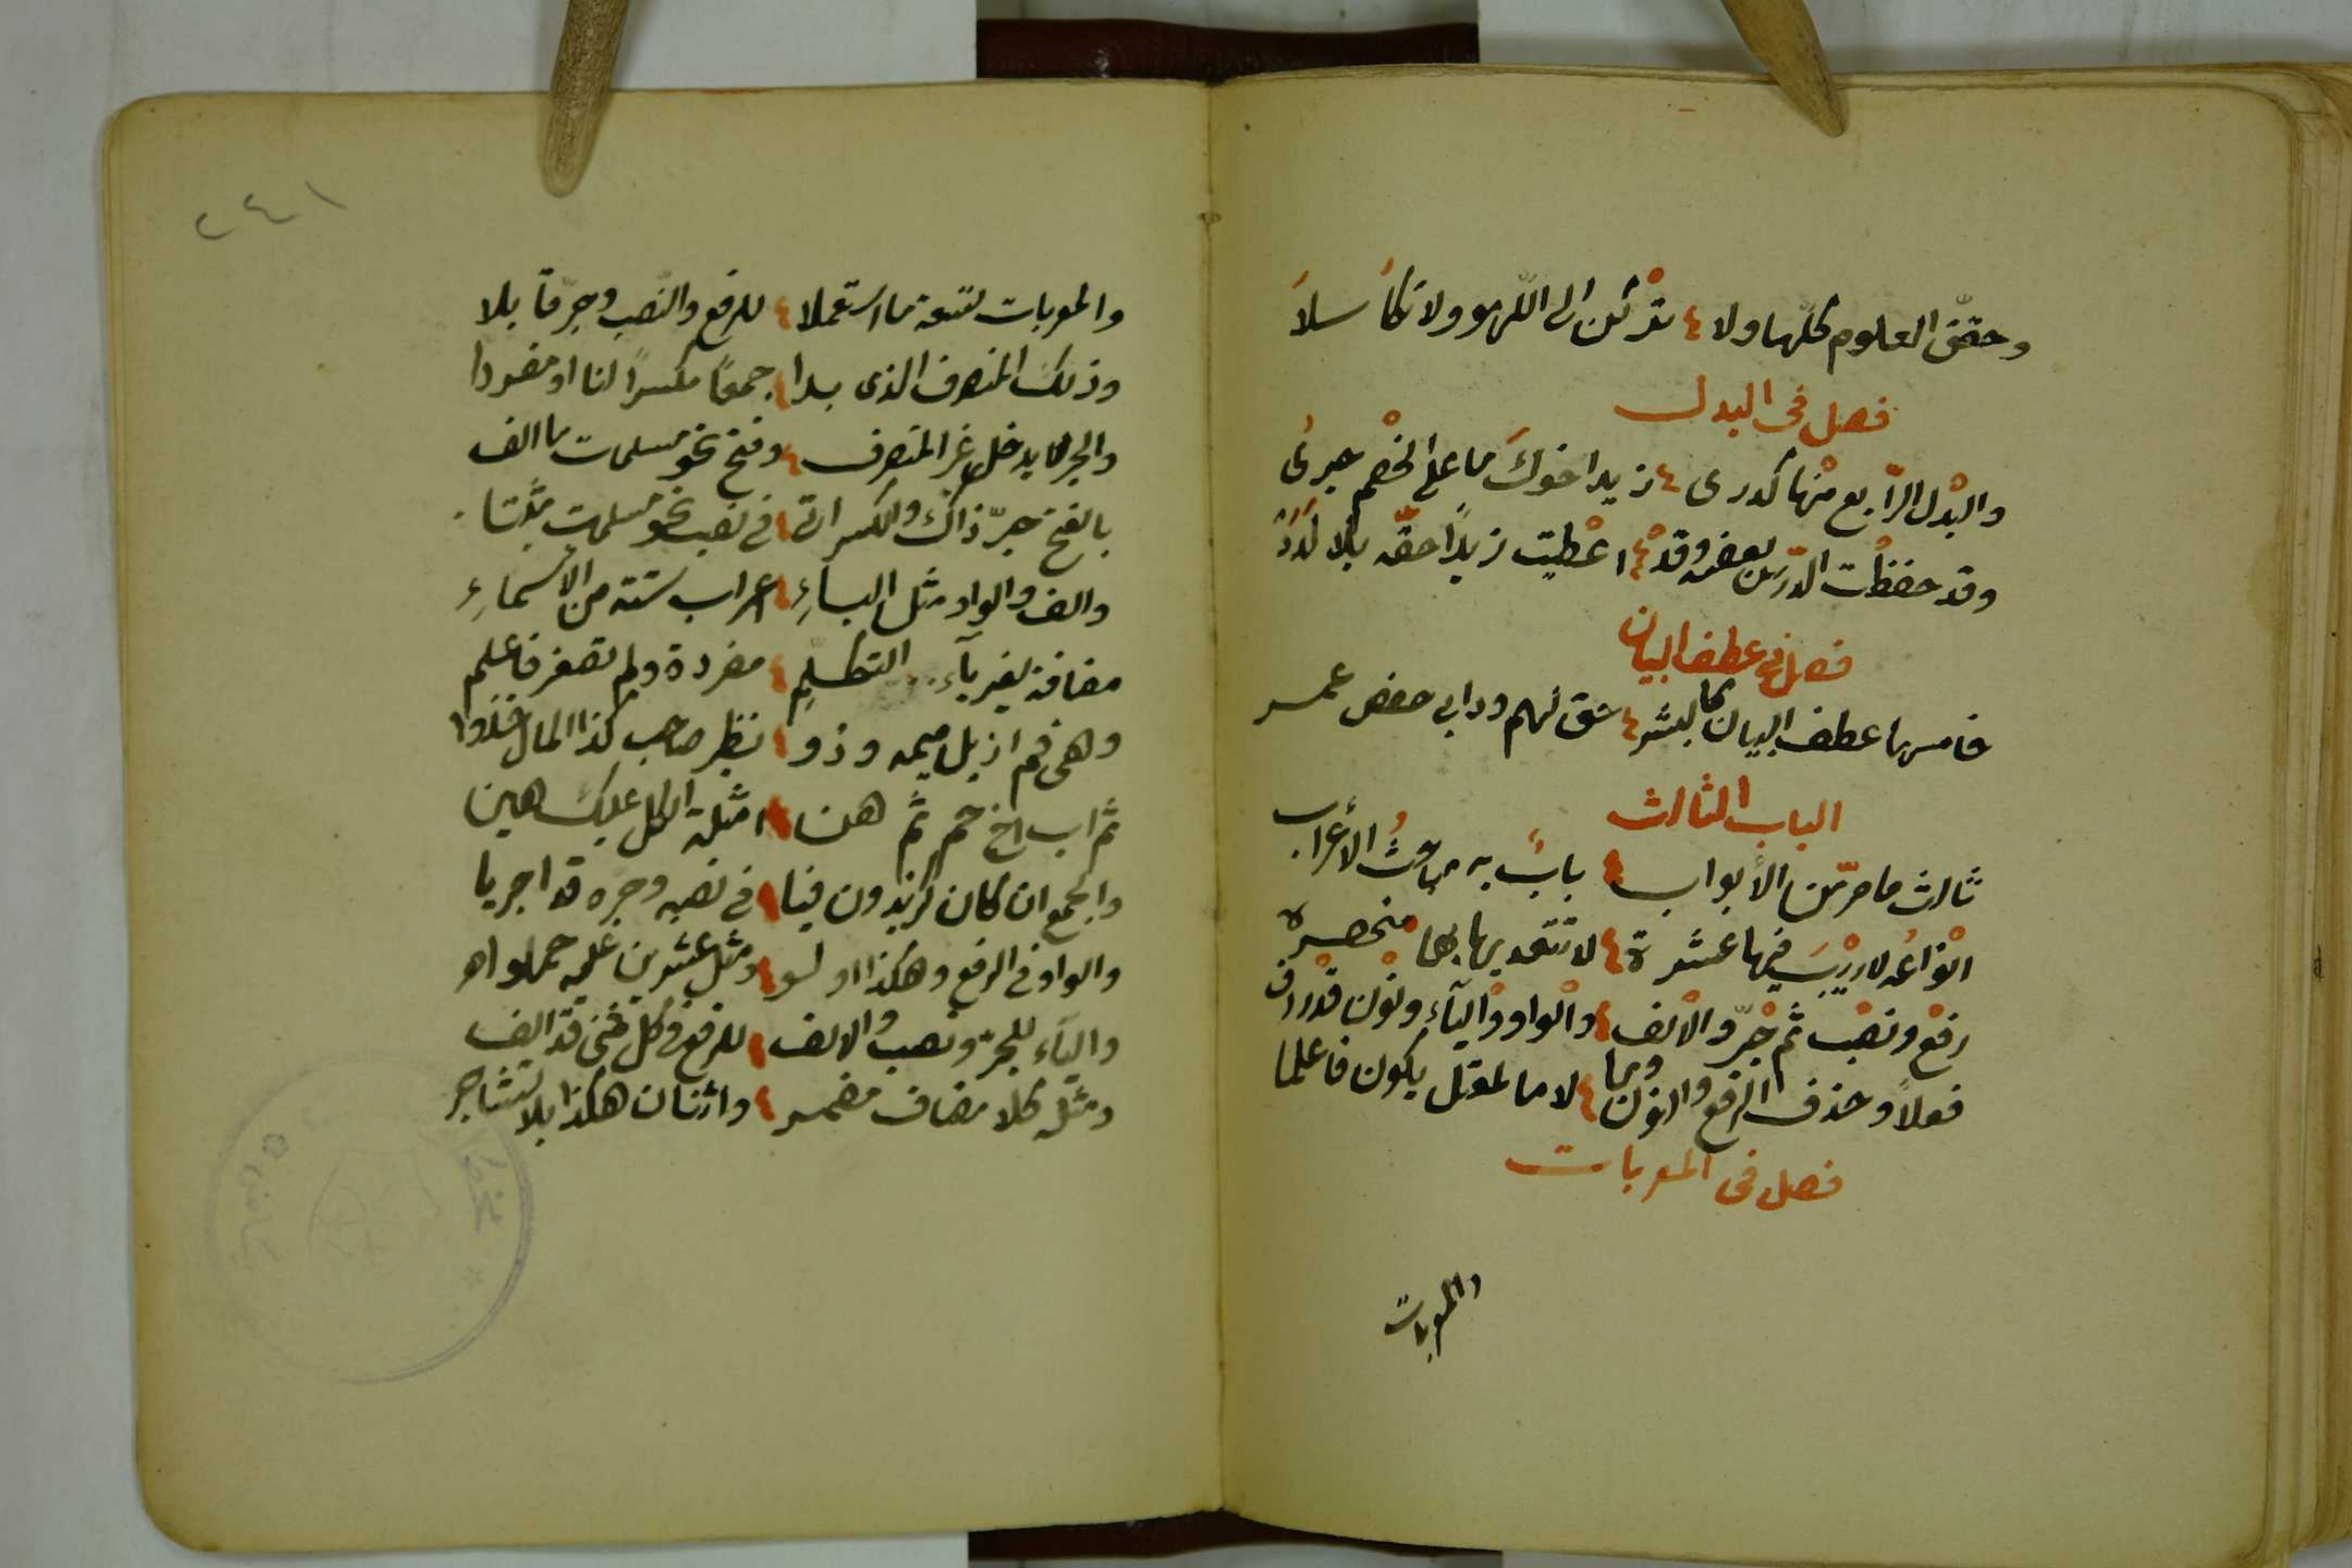 وحقق العلوم كلها ولا ؛ تركن الى اللهو ولا تكاسلا
فصل في البدل
والبدل الرابع منها كدرى ؛ زيد اخوك ما على الخصم جرى
وقد حفظت الدرس بعضه وقد ؛ اعطيت زيدا حقه بلا لدد
فصل في عطف البيان
خامسها عطف البيان كالبشر ؛ شق لهم ودابى حفص عمر
الباب الثالث
ثالث ما مر من الأبواب ؛ باب به مباحث الأعراب
انواعه لا ريب فيها عشرة ؛ لا تتعديها بها منحصره
رفع ونصب ثم جر والالف ؛ والواو والياء ونون قد ردف
فعلا وحذف الرفع والنون وما ؛ لاما لمعتل يكون فاعلما
فصل في المعربات
والمعربات
١٤٢
والمعربات تسعة ما استعملا ؛ للرفع والنصب وجر قابلا
وذلك المنصرف الذى بدا ؛ جمعا مكسرا لنا او مفردا
والجر لا يدخل غير المنصرف ؛ وفتح نحو مسلمات ما الف
بالفتح جر ذاك والكسر اتى ؛ في نصب نحو مسلمات مثبتا
والف والواو مثل الياء ؛ اعراب ستة من الأسماء
مضافة لغير ياء التكلم ؛ مفردة ولم تصغر فاعلم
وهى فم ازيل ميمه وذو ؛ نظير صاحب كذا المال خذوا
ثم اب اخ حم ثم هن ؛ امثلة الكل عليك هين
والجمع ان كان كزيدون فيا ؛ في نصبه وجره قد اجريا
والواو في الرفع وهكذا اولو ؛ ومثل عشرين عليه حملوا
والياء للجر ونصب والالف ؛ للرفع في كل مثنى قد الف
ومثله كلا مضاف مضمر ؛ واثنان هكذا بلا